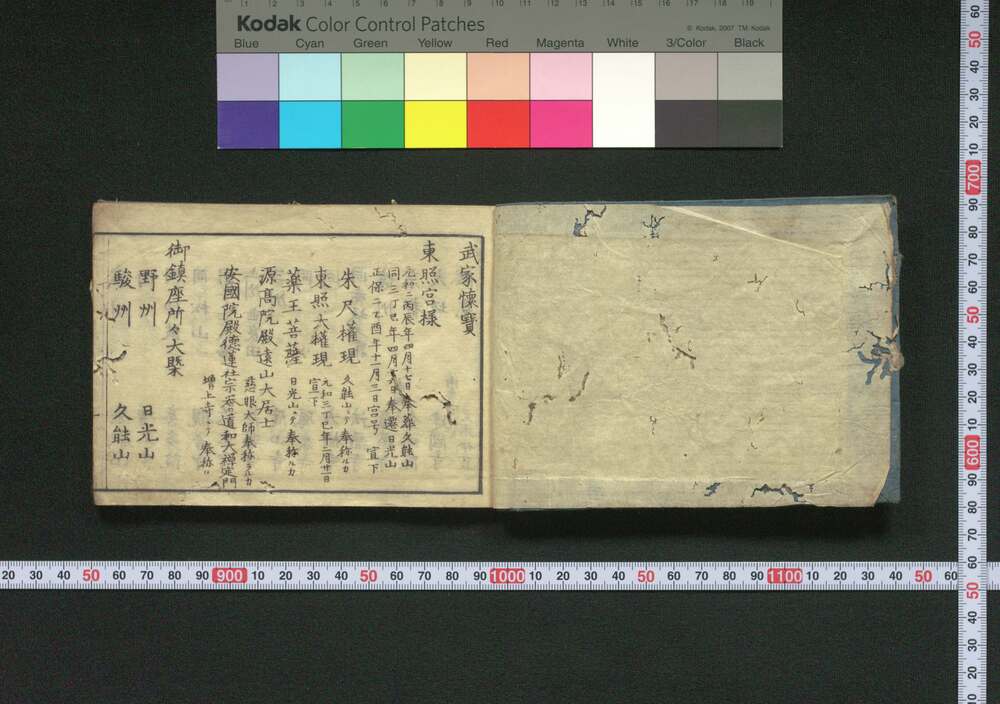 Kodak Color Control Patches
© Kodak, 2007 TM: Kodak
Blue Cyan Green Yellow Red Magenta White 3/Color Black
武家懐寳
東照宮様
元和二丙辰年四月十七日奉葬久能山
同三丁巳年四月 日奉遷日光山
正保二乙酉年十一月三日宮号宣下
朱尺權現 久能山ニテ奉称ルカ
東照大權現 元和三丁巳年二月廿一日宣下
薬王菩薩 日光山ニテ奉称ルカ
源高院殿遠山大居士 慈眼大師奉称ルカ
安國院殿德蓮社宗譽道和大禅定門 増上寺ニテ奉称ル
御鎮座所々大槩
野州 日光山
駿州 久能山
20 30 40 50 60 70 80 90 900 10 20 30 40 50 60 70 80 90 1000 10 20 30 40 50 60 70 80 90 1100 10 20 30 40 50 60
60 50 40 30 20 10 700 90 80 70 60 50 40 30 20 10 600 90 80 70 60 50 40 30 20 10